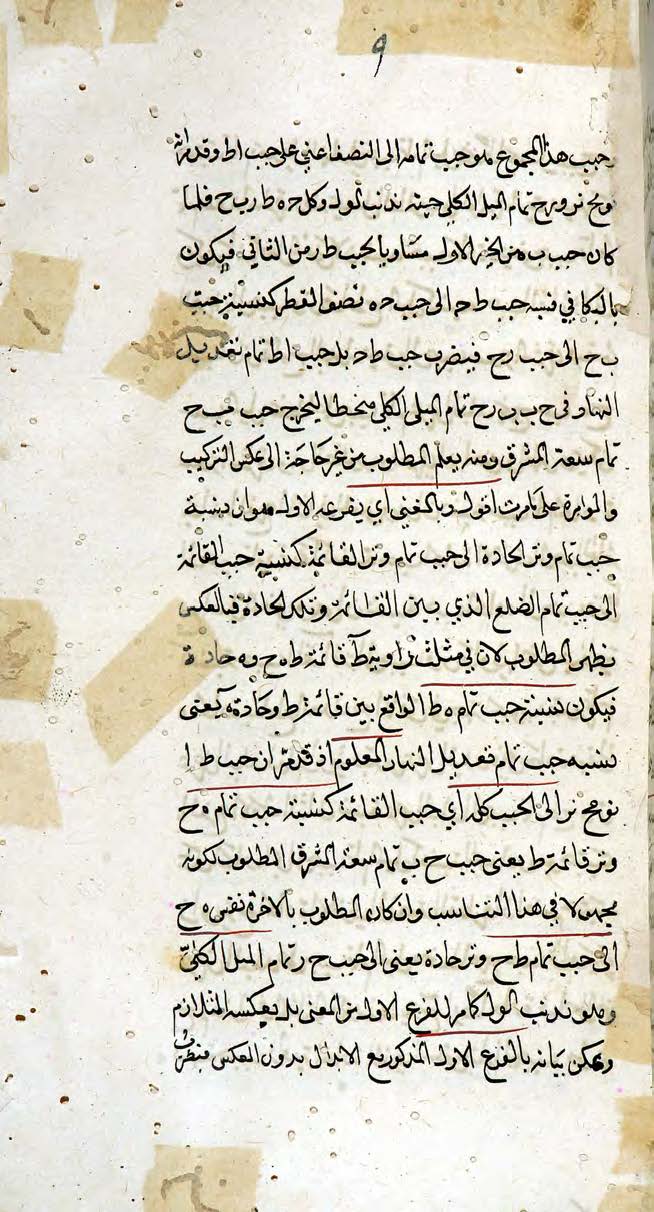 ٩
وجيب هذا المجموع هو جيب تمامه الى النصف اعني على جيب اط وقد مر انه
تمام الميل الكلي جيبه ند نب لو له وكل ح ه ط ر ب ح فلما
كان جيب ب ه من الجزء الاول مساويا لجيب ط ر من الثاني فيكون
بالبكافي نسبة جيب ط ح الى جيب ح ه نصف القطر كنسبة جيب
ب ح الى جيب ر ح فيضرب جيب ط ح بل جيب اط تمام تعديل
النهار في ح ب ر ح تمام الميل الكلي منحطا ليخرج جيب ب ح
تمام سعة المشرق ومنه يعلم المطلوب من غير حاجة الى عكس التركيب
والموامرة على ما مرت اقول وبالمغني اي بفرعه الاول هو ان نسبة
جيب تمام وتر الحادة الى جيب تمام وتر القائمة كنسبة جيب القائمة
الى جيب تمام الضلع الذي بين القائمة وتلك الحادة فبالعكس
يظهر المطلوب لان في مثلث زاوية ط قائمة ط ه ح و ه حادة
فيكون نسبة جيب تمام ه ط الواقع بين قائمة ط وحادة ه يعني
نسبة جيب تمام تعديل النهار المعلوم اذ قد مر ان جيب ط ا
الى الجيب كله اي جيب القائمة كنسبة جيب تمام ه ح
وتر قائمة ط يعني جيب ح ب تمام سعة المشرق المطلوب لكونه
مجهولا في هذا التناسب وان كان المطلوب بالاخرة نفس ه ح
الى جيب تمام ط ح وتر حادة يعني الى جيب ح ر تمام الميل الكلي
وهو ند نب لو له كما مر للفرع الاول من المغني بل بعكسه المتلازم
ويمكن بيانه بالفرع الاول المذكور مع الابدال بدون العكس فينظر